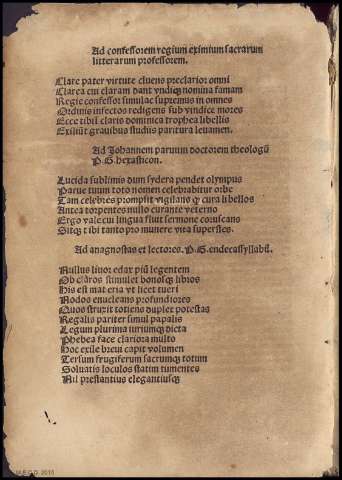 Ad confessorem regium eximium sacrarum
litterarum professorem.
Clare pater virtute cluens preclarior omni
Clarea cui claram dant vndiq̧ nomina famam
Regie confessor simulac supremus in omnes
Ordinis infectos redigens sub vindice mores
Ecce tibi claris dominica trophea libellis
Exiliūt gravibus studiis paritura levamen.
Ad Johannem paruum doctorem theologū
P.G. hexasticon.
Lucida sublimis dum sydera pendet olympus
Parue tuum toto nomen celebrabitur orbe
Tam celebres prompsit vigilans q̄ cura libellos
Antea torpentes nullo curante veterno
Ergo vale cui lingua fluit sermone coruscans
Sitq̧ tibi tanto pro munere vita superstes.
Ad anagnostas et lectores. P.G. endecassyllabū.
Nullus liuor edax piū legentem
Ob claros stimulet bonosq̧ libros
His est materia vt licet tueri
Nodos enucleans profundiores
Quos struxit totiens duplex potestas
Regalis pariter simul papalis
Legum plurima iuriumq̧ dicta
Phebea face clariora multo
Hoc exile breui capit volumen
Tersum frugiferum sacrumq̧ totum
Soluatis loculos statim tumentes
Nil prestantius elegantiusq̧